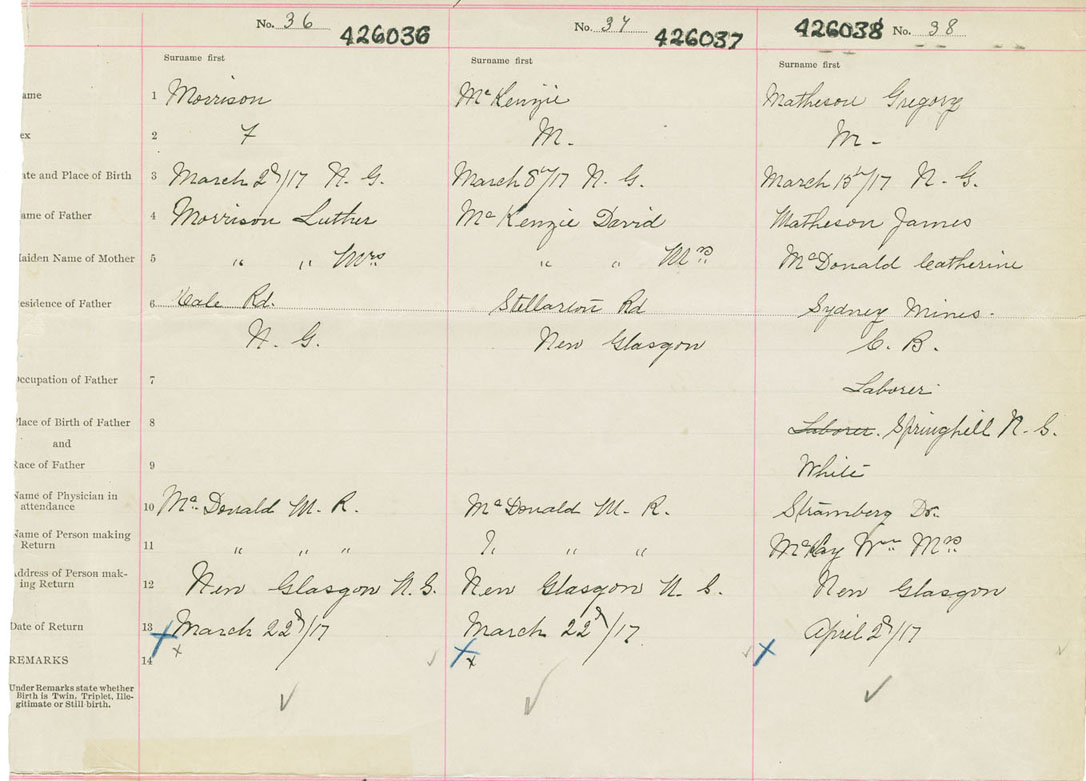 No. 36 426036 No. 37 426037 426038 No. 38
Surname first Surname first Surname first
ame 1 Morrison McKenzie Matheson Gregory
ex 2 F M. M.
ate and Place of Birth 3 March 2d/17 N. G. March 8th/17 N. G. March 15th/17 N. G.
ame of Father 4 Morrison Luther McKenzie David Matheson James
aiden Name of Mother 5 " " Mrs " " Mrs McDonald Catherine
esidence of Father 6 Rd. Stellarton Rd Sydney Mines.
N. G. New Glasgow C. B.
Occupation of Father 7 Laborer
Place of Birth of Father 8 Laborer. Springhill N. S.
and
Race of Father 9 White
Name of Physician in
attendance 10 McDonald M. R. McDonald M. R. Stramberg Dr.
Name of Person making
Return 11 " " " " " " McKay Wm Mrs
Address of Person mak-
ing Return 12 New Glasgow N. S. New Glasgow N. S. New Glasgow
Date of Return 13 March 22d/17 March 22d/17 April 2d/17
REMARKS 14
Under Remarks state whether
Birth is Twin, Triplet, Ille-
gitimate or Still birth.